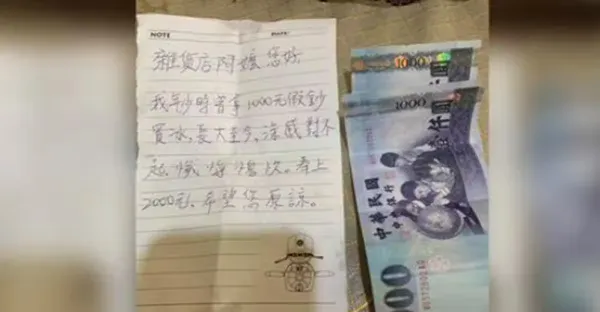 NOTE
DATE:
雜貨店阿嬤您好
我年少時曾拿1000元假鈔
買冰,長大至今,深感對不
起,懺悔
奉上
2000元,希望您原諒。
1000
1000
壹仟圓
中華民國
中央銀行
000